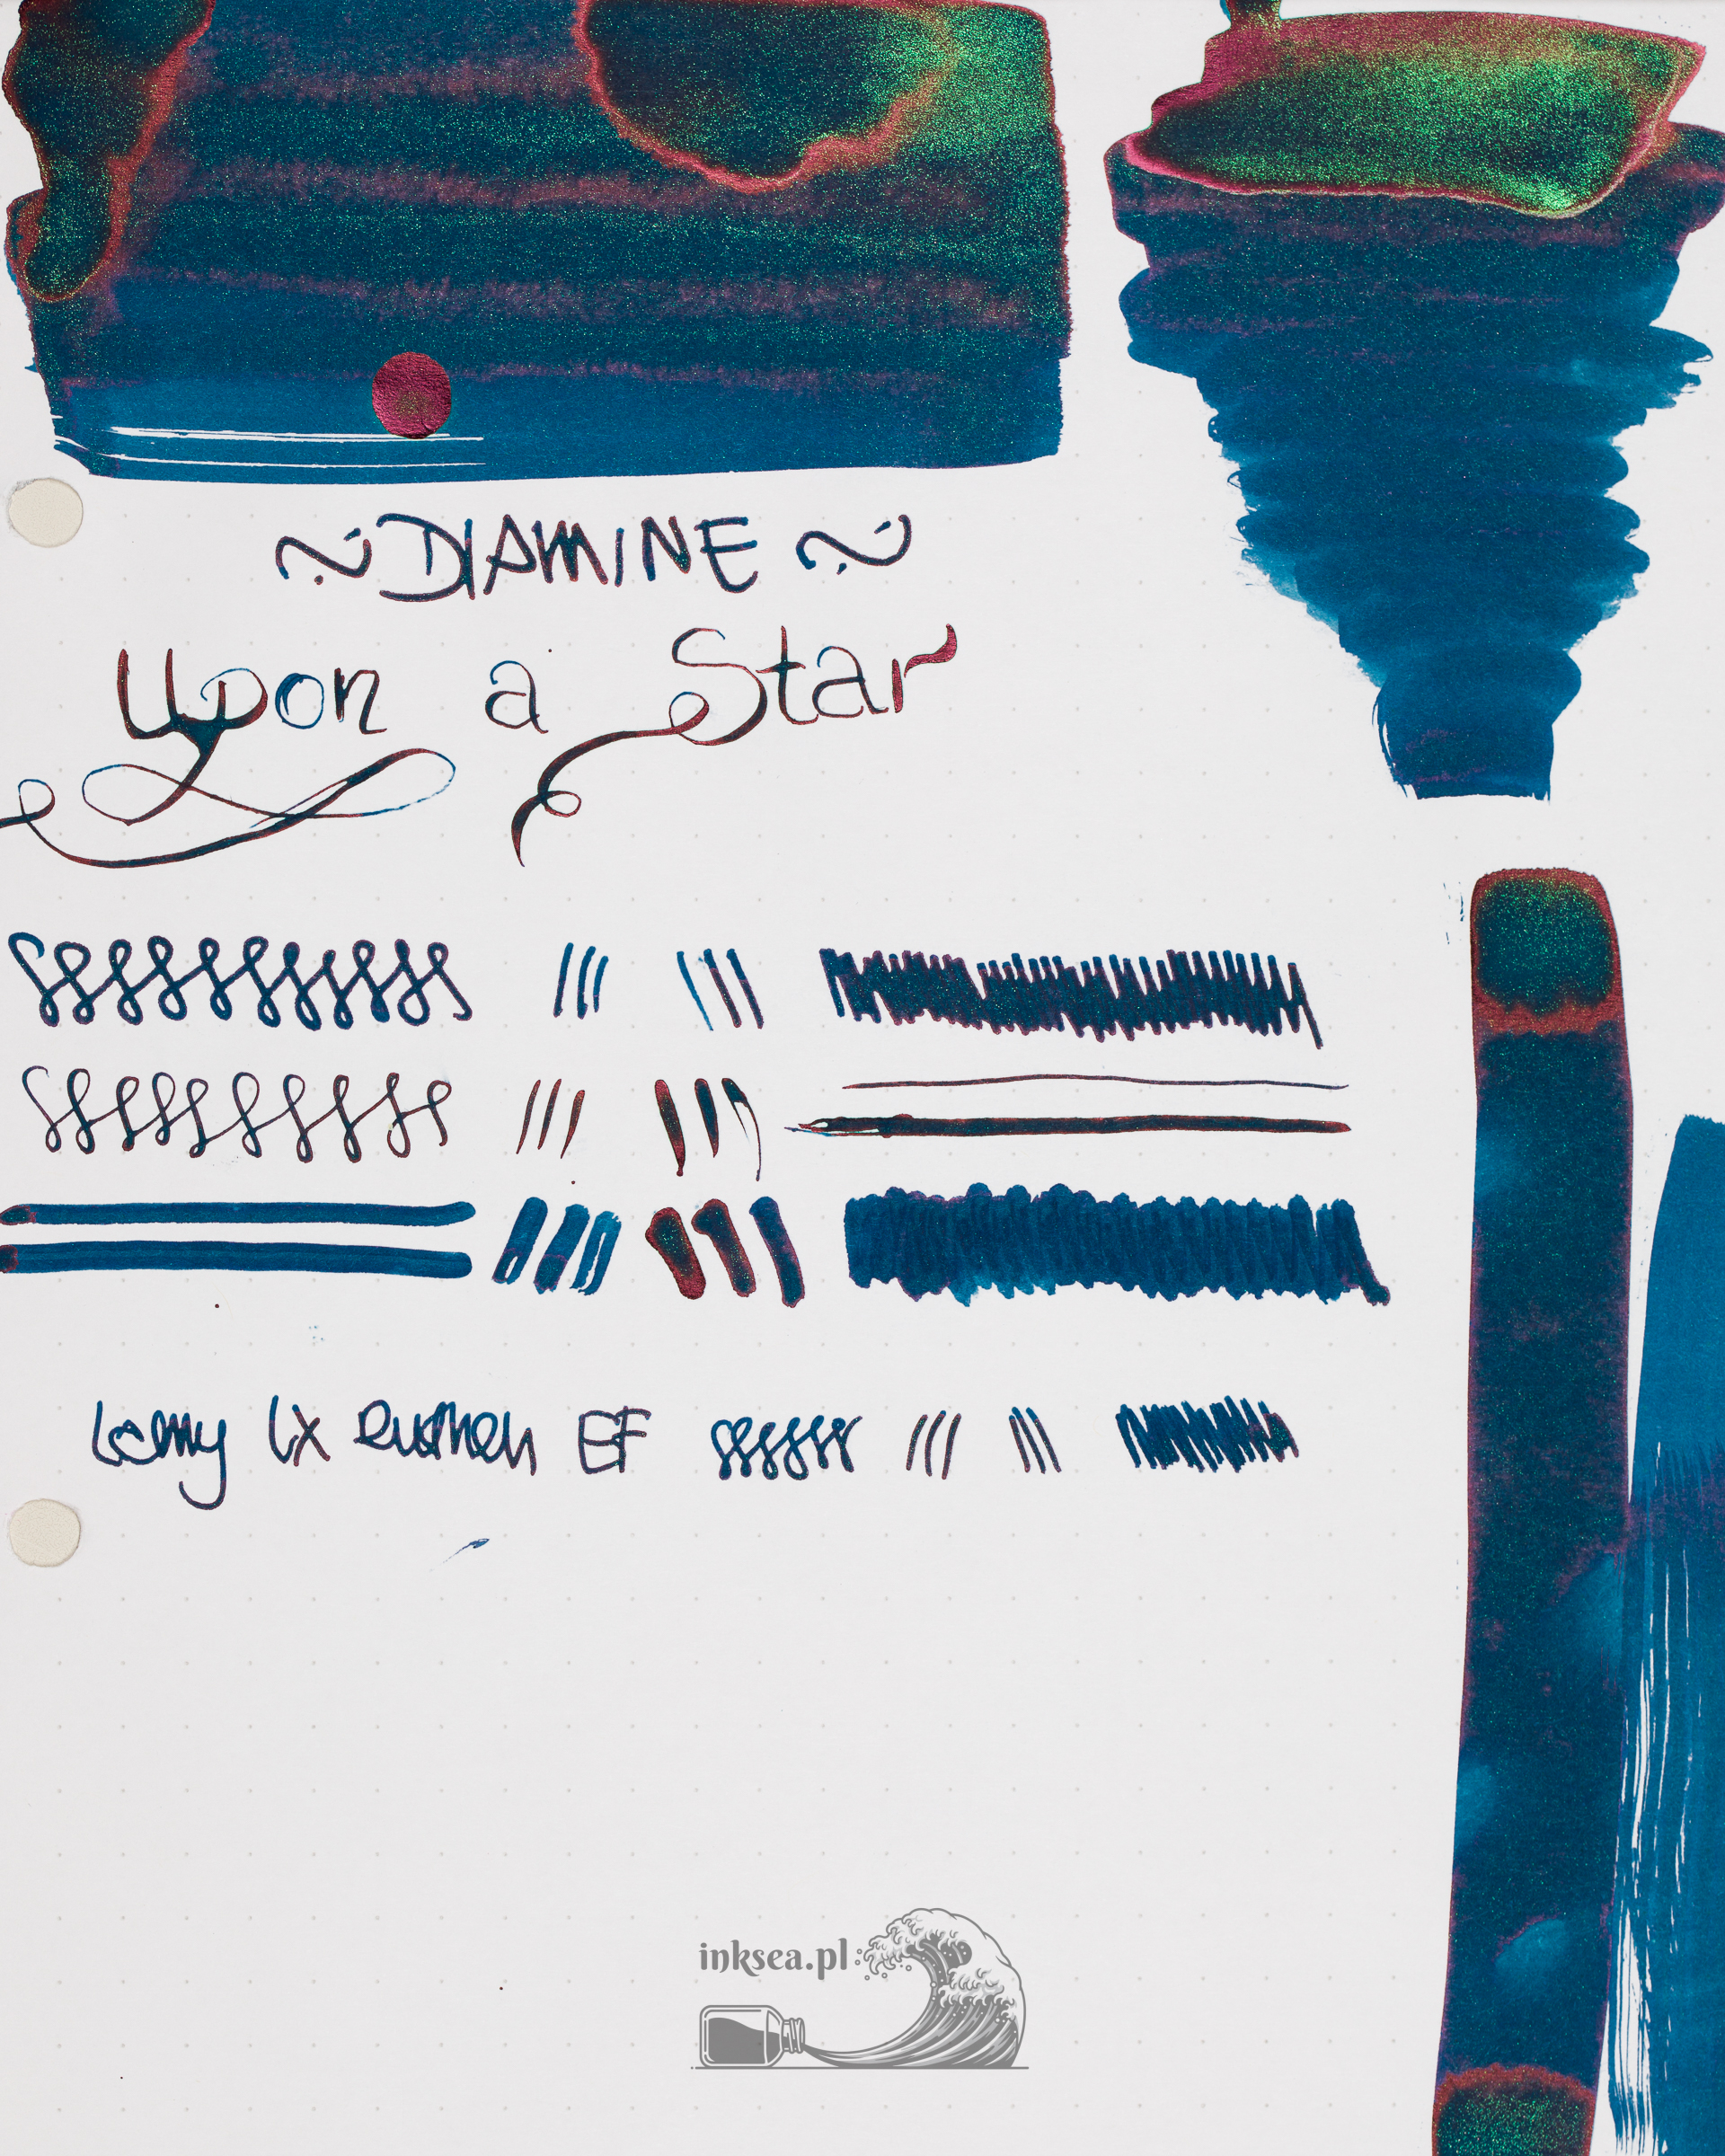 ~ DIAMINE ~
Upon a Star
Lamy Lx Rushen EF
inksea.pl